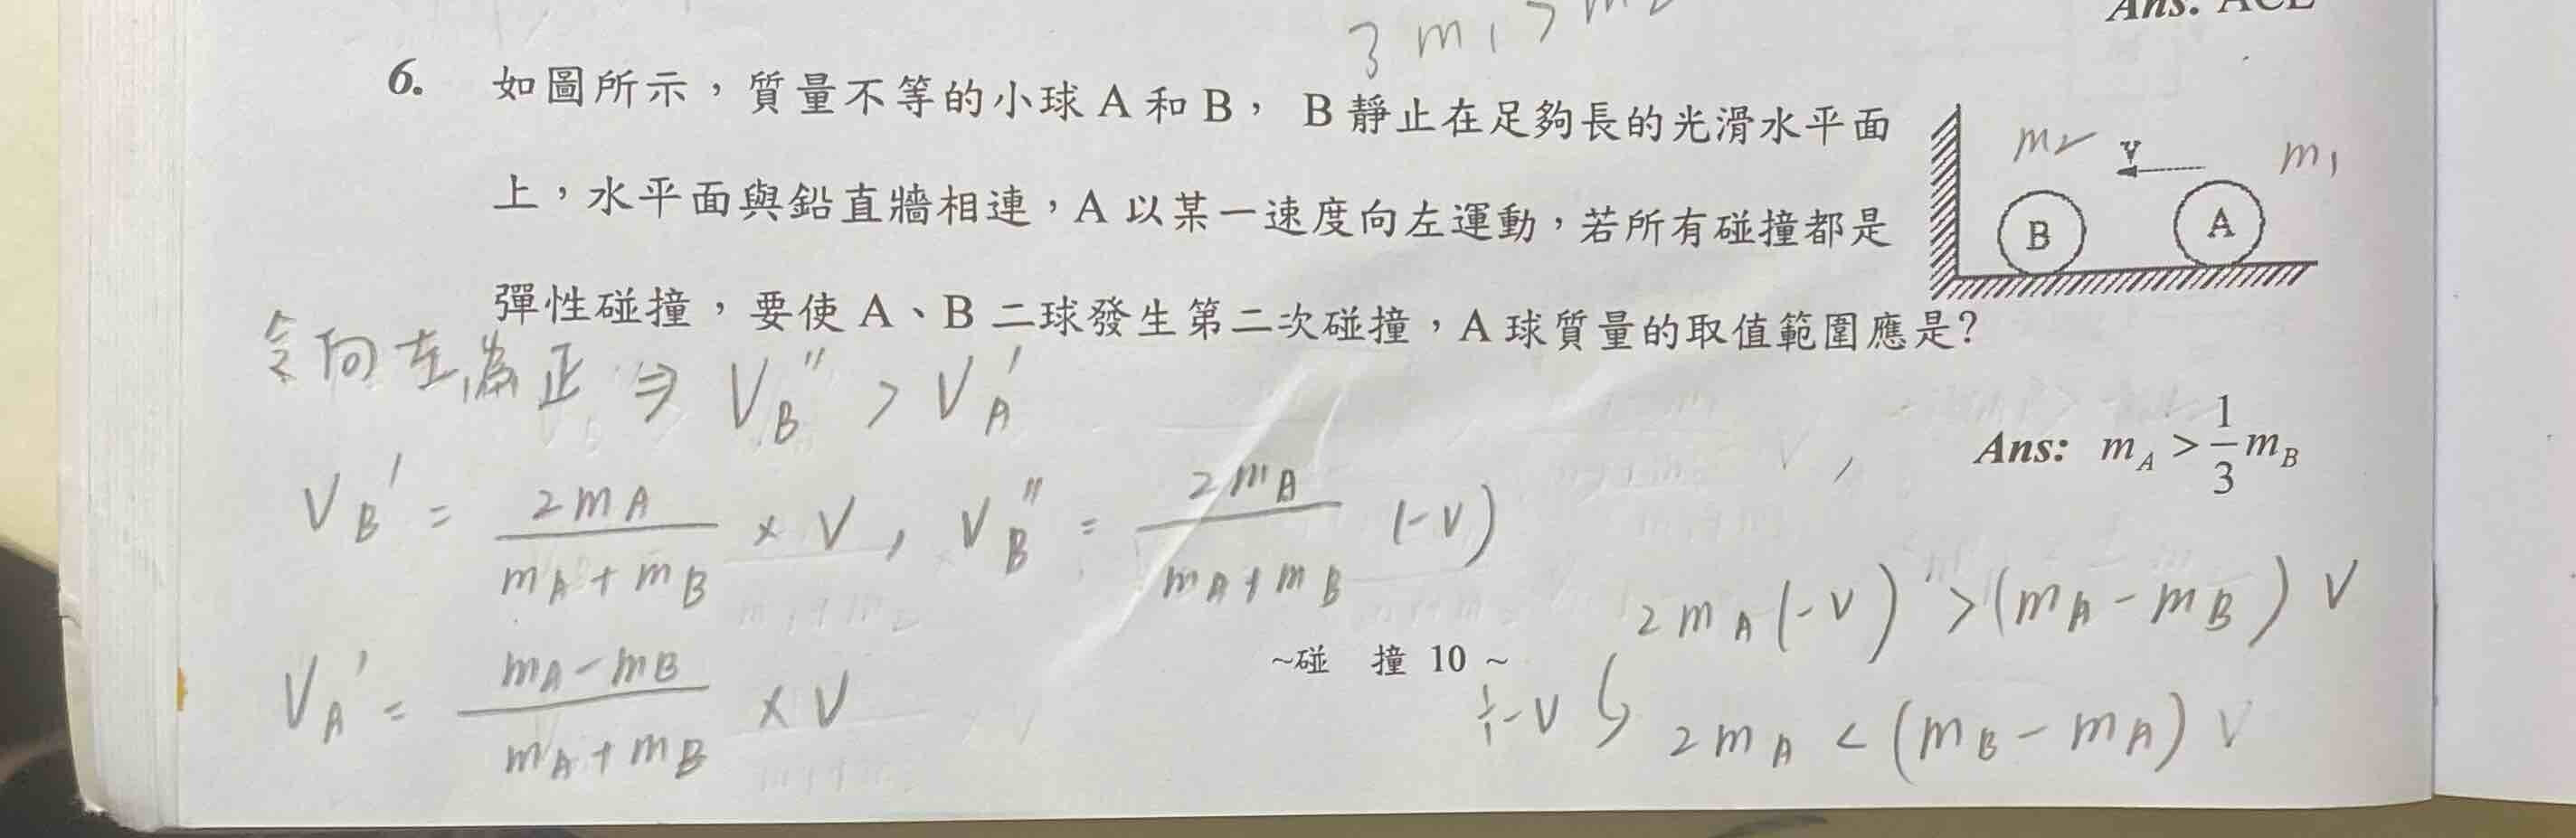 3 m₁ > m₂
Ans: ACE
6. 如圖所示，質量不等的小球 A 和 B， B 靜止在足夠長的光滑水平面
上，水平面與鉛直牆相連，A 以某一速度向左運動，若所有碰撞都是
彈性碰撞，要使 A、B 二球發生第二次碰撞，A 球質量的取值範圍應是?
m₂ v m₁
B A
令向左為正 ⇒ V_B'' > V_A'
Ans: m_A > 1/3 m_B
V_B' = 2m_A / (m_A + m_B) × V , V_B'' = 2m_A / (m_A + m_B) (-V)
V_A' = (m_A - m_B) / (m_A + m_B) × V
2m_A(-V) > (m_A - m_B) V
÷-V 2m_A < (m_B - m_A) V
~碰 撞 10 ~